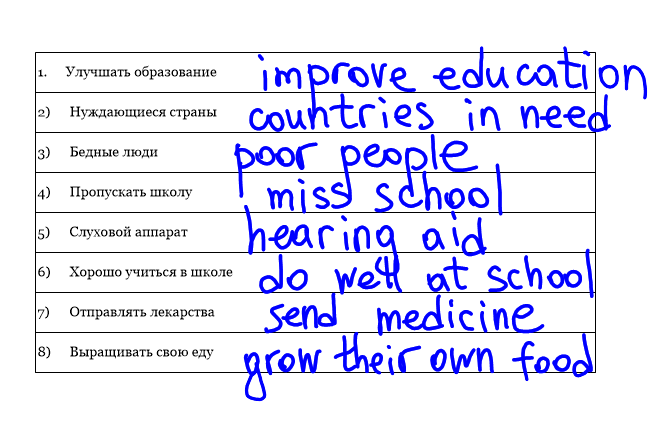 1. Улучшать образование improve education
2) Нуждающиеся страны countries in need
3) Бедные люди poor people
4) Пропускать школу miss school
5) Слуховой аппарат hearing aid
6) Хорошо учиться в школе do well at school
7) Отправлять лекарства send medicine
8) Выращивать свою еду grow their own food